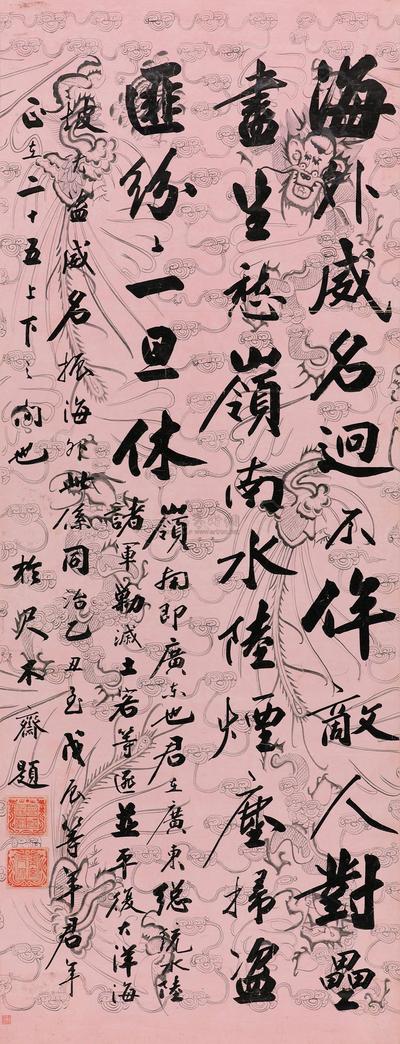 海外威名迥不侔敵人對壘
盡生愁嶺南水陸煙塵掃盜
匪紛〻一旦休
嶺南即廣東也君在廣東總統水陸
諸軍勦滅土客等匪並平復大洋海
披六盜威名振海外此係同治乙丑至戊辰等年君年
正在二十五上下之間也
於尺木齋題